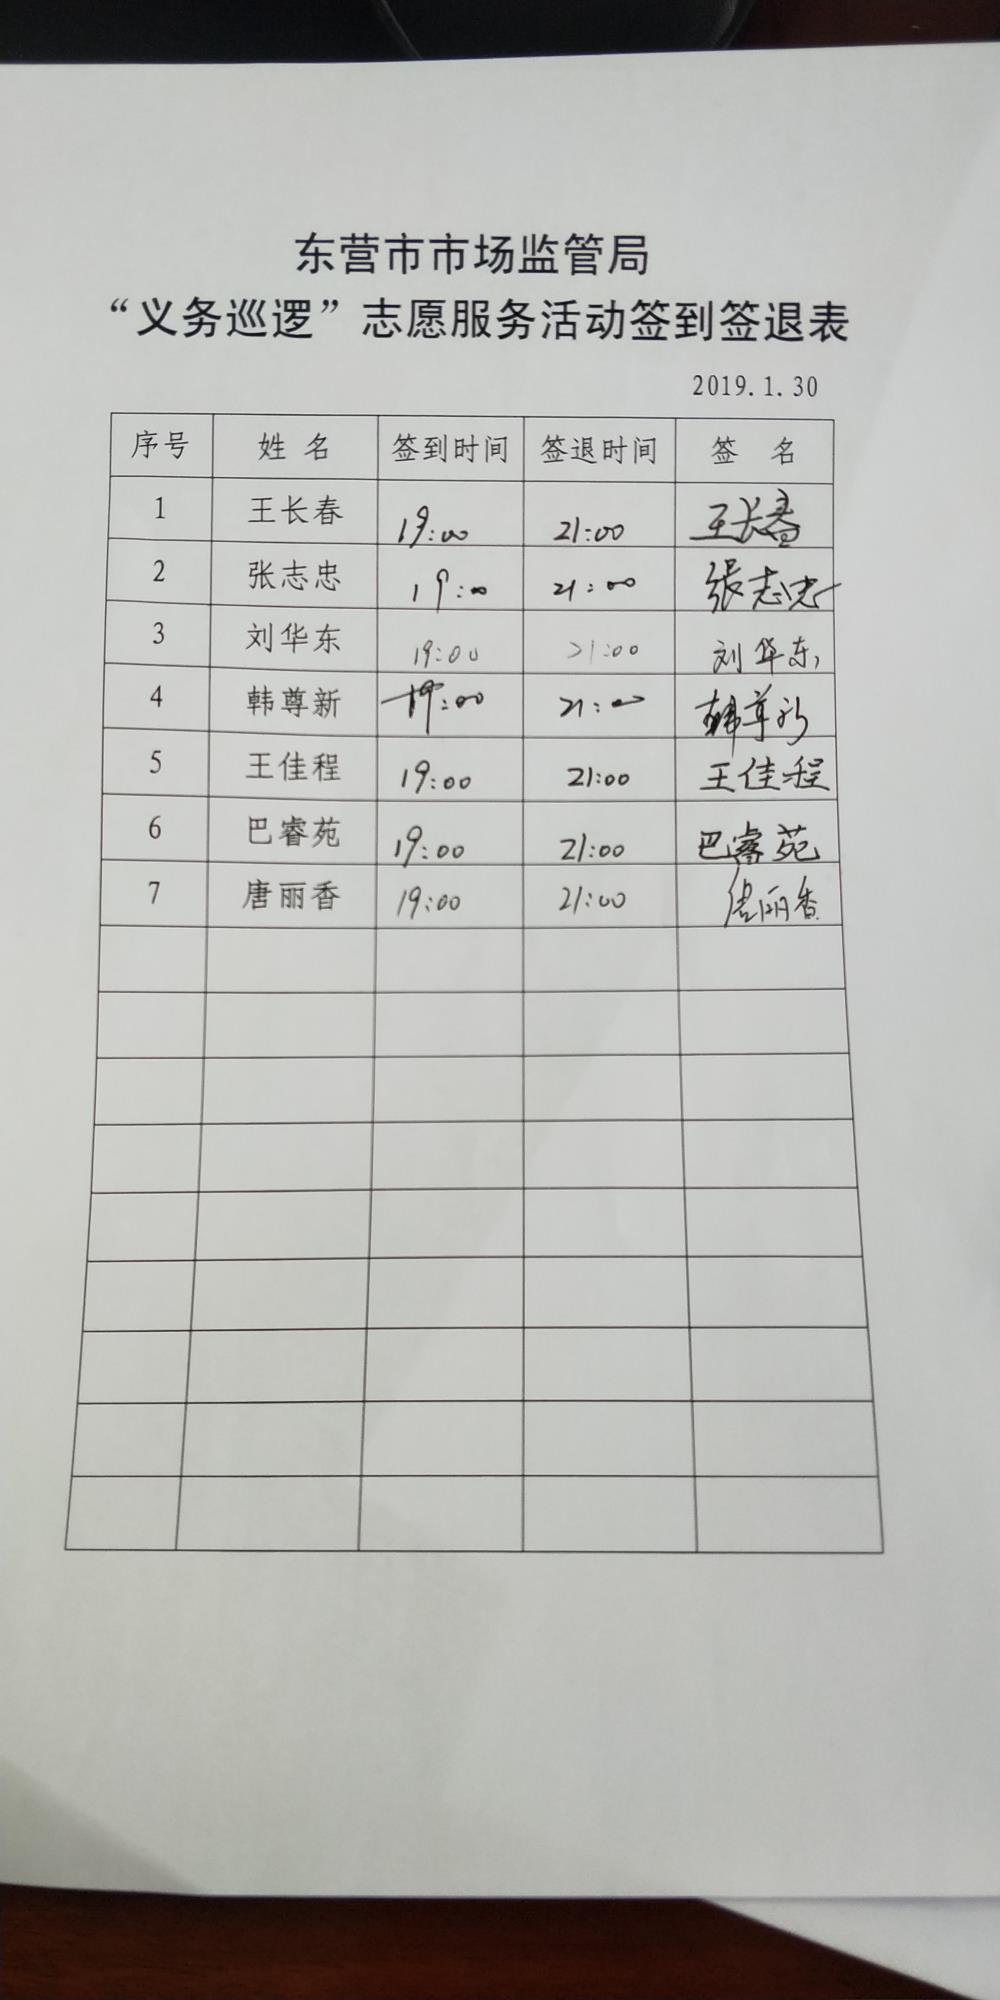 东营市市场监管局
“义务巡逻”志愿服务活动签到签退表
2019.1.30
序号 姓名 签到时间 签退时间 签名
1 王长春 19:00 21:00 王长春
2 张志忠 19:00 21:00 张志忠
3 刘华东 19:00 21:00 刘华东
4 韩尊新 19:00 21:00 韩尊新
5 王佳程 19:00 21:00 王佳程
6 巴睿苑 19:00 21:00 巴睿苑
7 唐丽香 19:00 21:00 唐丽香